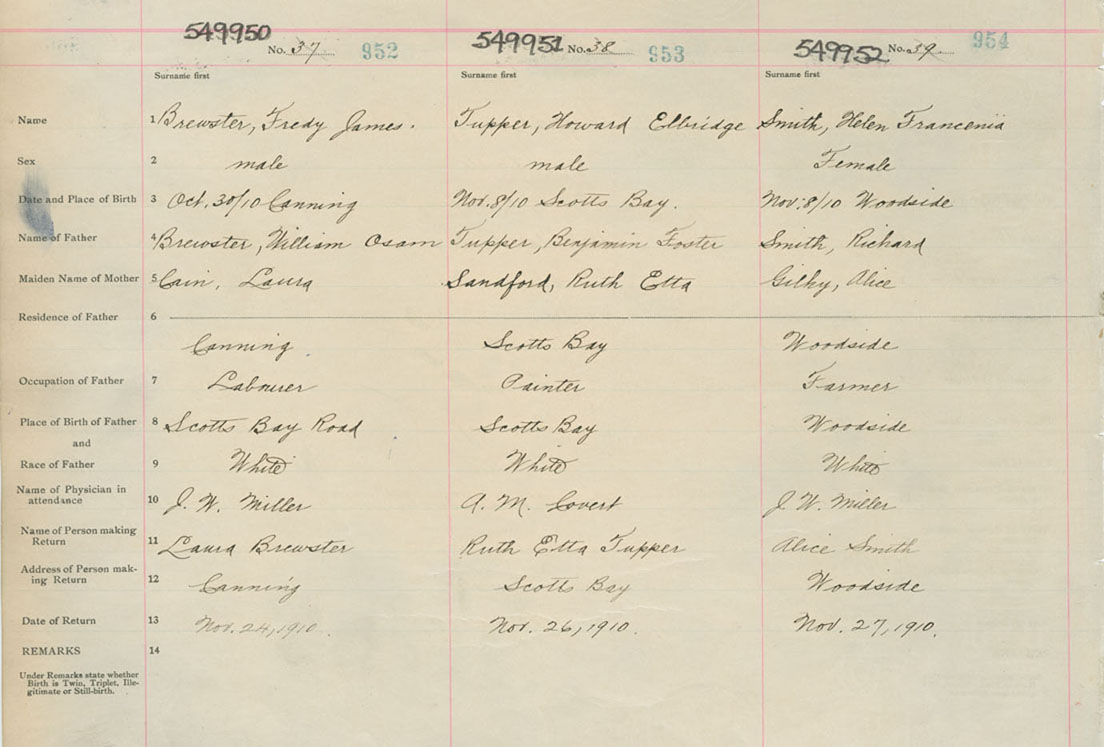 549950 No. 37 952 549951 No. 38 953 549952 No. 39. 954
Surname first Surname first Surname first
Name 1 Brewster, Fredy James. Tupper, Howard Elbridge Smith, Helen Francenia
Sex 2 male male Female
Date and Place of Birth 3 Oct. 30/10 Canning Nov. 8/10 Scotts Bay. Nov. 8/10 Woodside
Name of Father 4 Brewster, William Osam Tupper, Benjamin Foster Smith, Richard
Maiden Name of Mother 5 Cain, Laura Sandford, Ruth Etta Gilky, Alice
Residence of Father 6
Canning Scotts Bay Woodside
Occupation of Father 7 Labourer Painter Farmer
Place of Birth of Father 8 Scotts Bay Road Scotts Bay Woodside
and
Race of Father 9 White White White
Name of Physician in
attendance 10 J. W. Miller A. M. Covert J. W. Miller
Name of Person making
Return 11 Laura Brewster Ruth Etta Tupper Alice Smith
Address of Person mak-
ing Return 12 Canning Scotts Bay Woodside
Date of Return 13 Nov. 24, 1910. Nov. 26, 1910. Nov. 27, 1910.
REMARKS 14
Under Remarks state whether
Birth is Twin, Triplet, Ille-
gitimate or Still-birth.